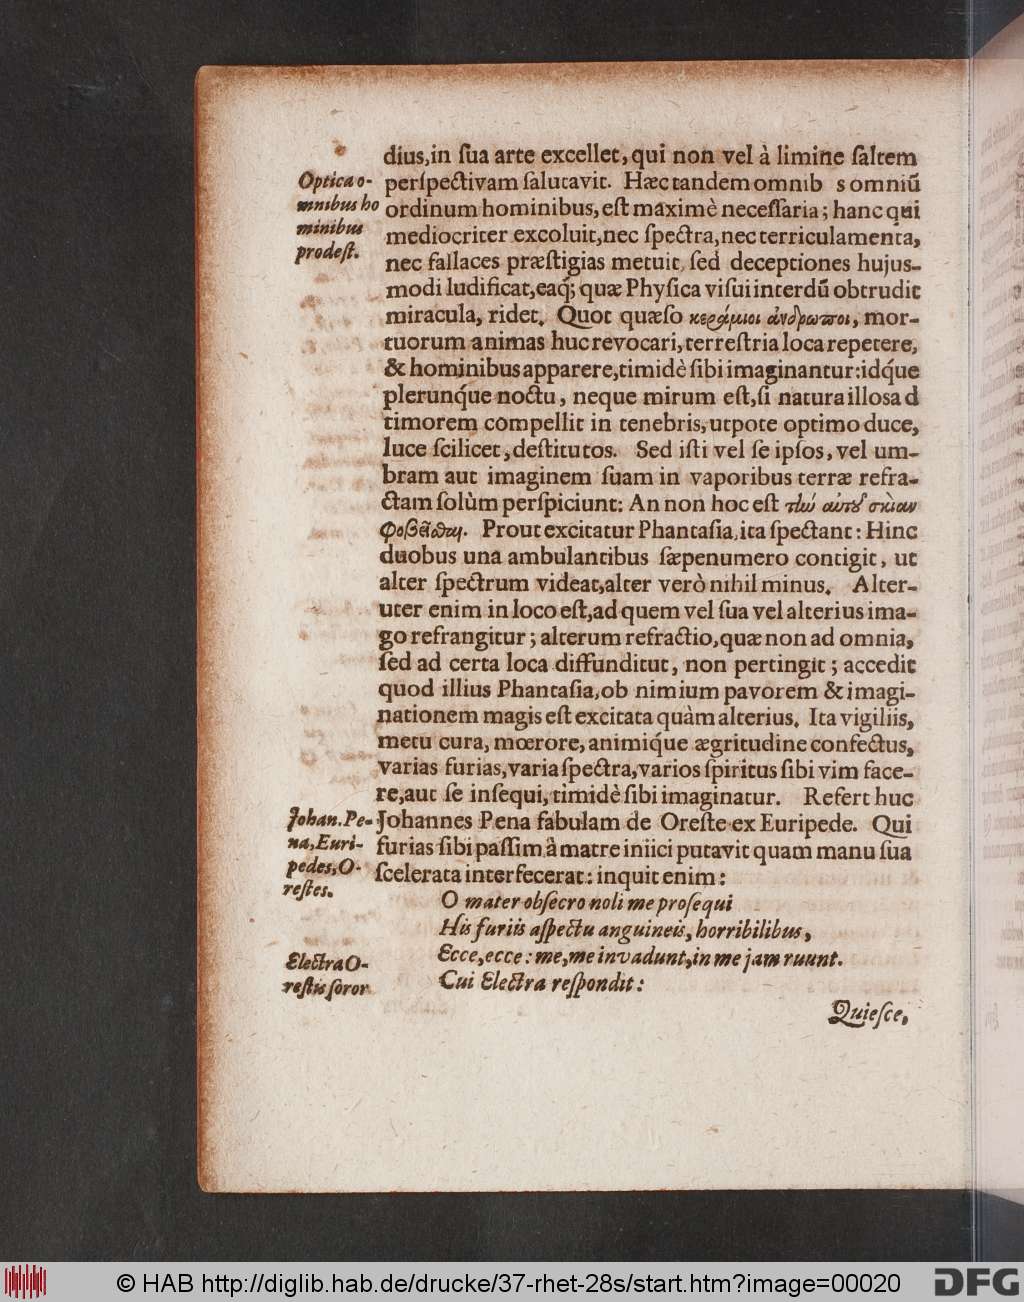 dius,in ſua arte excellet, qui non vel à limine ſaltem
Optica o-
mnibus ho
minibus
prodeſt.
perſpectivam ſalutavit. Hæc tandem omnib s omniũ
ordinum hominibus, eſt maximè neceſſaria; hanc qui
mediocriter excoluit,nec ſpectra,nec terriculamenta,
nec fallaces præſtigias metuit, ſed deceptiones hujus-
modi ludificat,eaq́; quæ Phyſica viſui interdũ obtrudit
miracula, ridet. Quot quæſo κεράμιοι ἀνδρωποι, mor-
tuorum animas huc revocari, terreſtria loca repetere,
& hominibus apparere,timidè ſibi imaginantur:idq́ue
plerunq́ue noctu, neque mirum eſt,ſi natura illosa d
timorem compellit in tenebris,utpote optimo duce,
luce ſcilicet, deſtitutos. Sed iſti vel ſe ipſos, vel um-
bram aut imaginem ſuam in vaporibus terræ refra-
ctam ſolùm perſpiciunt: An non hoc eſt τὴν αὑτοῦ σκιὰν
φοβεῖσθαι. Prout excitatur Phantaſia,ita ſpectant: Hinc
duobus una ambulantibus ſæpenumero contigit, ut
alter ſpectrum videat,alter verò nihil minus. Alter-
uter enim in loco eſt,ad quem vel ſua vel alterius ima-
go refrangitur; alterum refractio,quæ non ad omnia,
ſed ad certa loca diffunditut, non pertingit; accedit
quod illius Phantaſia,ob nimium pavorem & imagi-
nationem magis eſt excitata quàm alterius. Ita vigiliis,
metu cura, mœrore, animiq́ue ægritudine confectus,
varias furias,varia ſpectra,varios ſpiritus ſibi vim face-
re,aut ſe inſequi, timidè ſibi imaginatur. Refert huc
Johan.Pe-
na,Euri-
pedes,O-
reſtes.
Johannes Pena fabulam de Oreſte ex Euripede. Qui
furias ſibi paſſim à matre iniici putavit quam manu ſua
ſcelerata interfecerat: inquit enim:
O mater obſecro noli me proſequi
His furiis aſpectu anguineis, horribilibus,
Ecce,ecce: me,me invadunt,in me jam ruunt.
Electra O-
reſtis ſoror
Cui Electra reſpondit:
Quieſce,
© HAB http://diglib.hab.de/drucke/37-rhet-28s/start.htm?image=00020
DFG